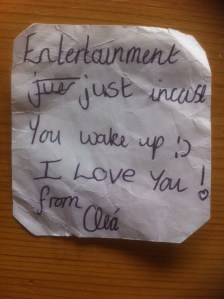 Entertainment
just incase
You wake up :)
I Love You!
from